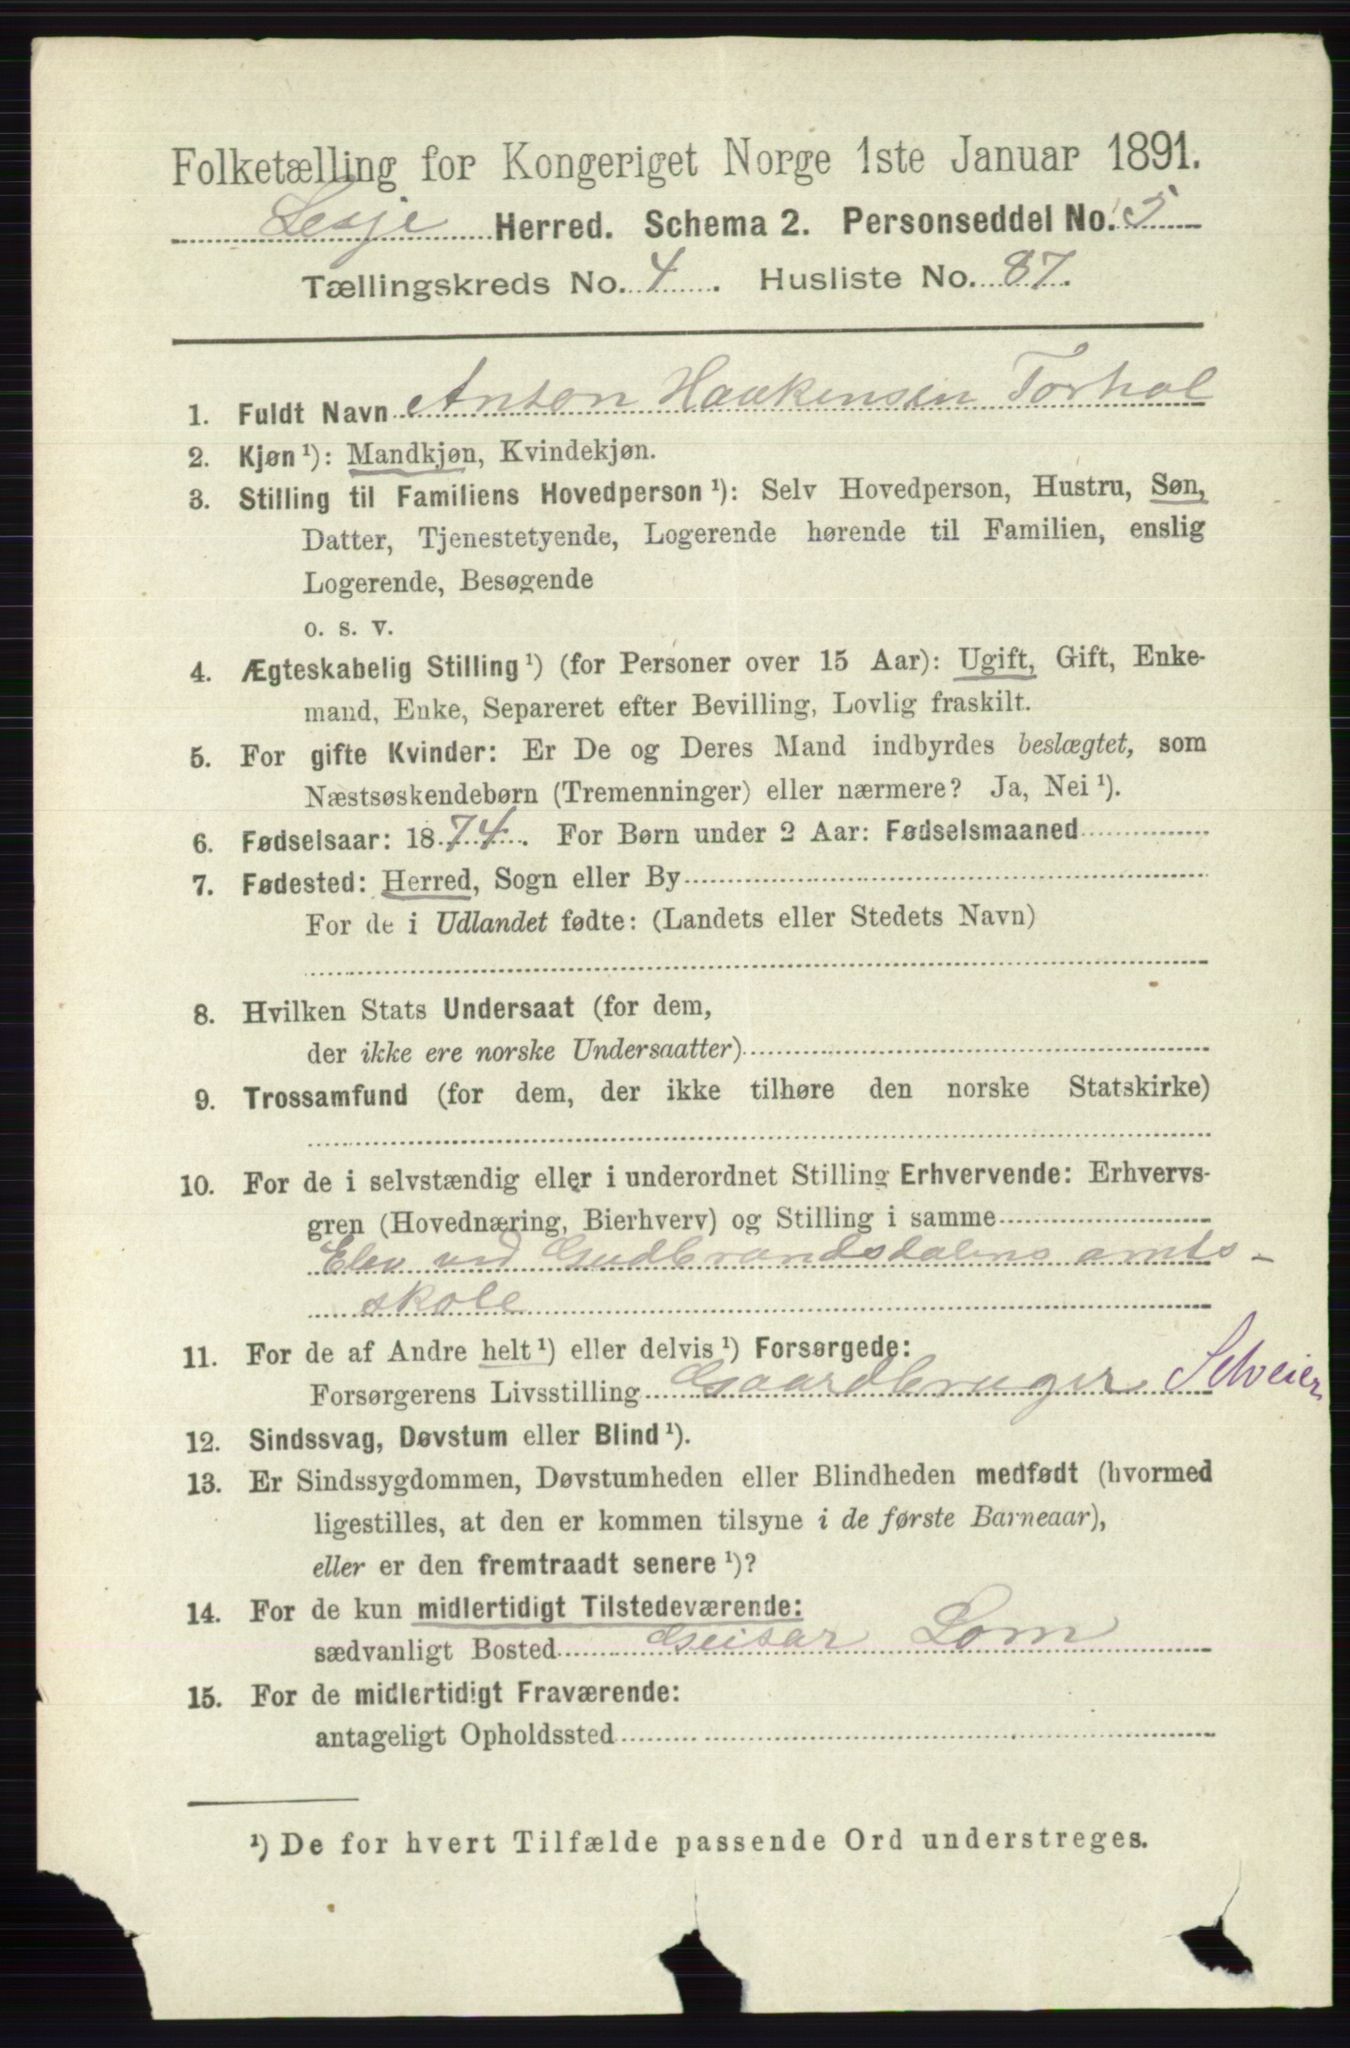 Folketælling for Kongeriget Norge 1ste Januar 1891.
Lesje Herred. Schema 2. Personseddel No. 5
Tællingskreds No. 4. Husliste No. 87.
1. Fuldt Navn Anton Haakensen Torhol
2. Kjøn ¹): Mandkjøn, Kvindekjøn.
3. Stilling til Familiens Hovedperson ¹): Selv Hovedperson, Hustru, Søn,
Datter, Tjenestetyende, Logerende hørende til Familien, enslig
Logerende, Besøgende
o. s. v.
4. Ægteskabelig Stilling ¹) (for Personer over 15 Aar): Ugift, Gift, Enke-
mand, Enke, Separeret efter Bevilling, Lovlig fraskilt.
5. For gifte Kvinder: Er De og Deres Mand indbyrdes beslægtet, som
Næstsøskendebørn (Tremenninger) eller nærmere? Ja, Nei ¹).
6. Fødselsaar: 1874. For Børn under 2 Aar: Fødselsmaaned
7. Fødested: Herred, Sogn eller By
For de i Udlandet fødte: (Landets eller Stedets Navn)
8. Hvilken Stats Undersaat (for dem,
der ikke ere norske Undersaatter)
9. Trossamfund (for dem, der ikke tilhøre den norske Statskirke)
10. For de i selvstændig eller i underordnet Stilling Erhvervende: Erhvervs-
gren (Hovednæring, Bierhverv) og Stilling i samme
Elev ved Gudbrandsdalens amts-
skole
11. For de af Andre helt ¹) eller delvis ¹) Forsørgede:
Forsørgerens Livsstilling Gaardbruger Selveier
12. Sindssvag, Døvstum eller Blind ¹).
13. Er Sindssygdommen, Døvstumheden eller Blindheden medfødt (hvormed
ligestilles, at den er kommen tilsyne i de første Barneaar),
eller er den fremtraadt senere ¹)?
14. For de kun midlertidigt Tilstedeværende:
sædvanligt Bosted Geisar Lom
15. For de midlertidigt Fraværende:
antageligt Opholdssted
¹) De for hvert Tilfælde passende Ord understreges.